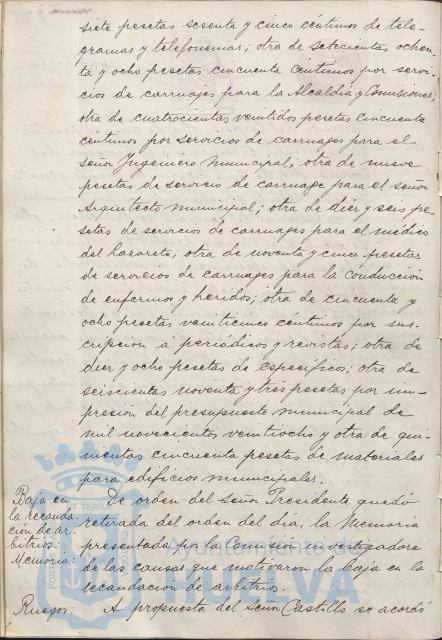 siete pesetas sesenta y cinco céntimos de tele-
gramas y telefonemas; otra de setecientas ochen-
ta y ocho pesetas cincuenta céntimos por servi-
cios de carruajes para la Alcaldía y Comisiones;
otra de cuatrocientas veintidos pesetas cincuenta
céntimos por servicios de carruages para el
señor Ingeniero Municipal; otra de nueve
pesetas de servicio de carruage para el señor
Arquitecto Municipal; otra de diez y seis pe-
setas de servicios de carruages para el médico
del Lazareto; otra de noventa y cinco pesetas
de servicios de carruages para la conducción
de enfermos y heridos; otra de cincuenta y
ocho pesetas veinticinco céntimos por sus-
cripcion á periódicos y revistas; otra de
diez y ocho pesetas de específicos; otra de
seiscientas noventa y tres pesetas, por im-
presion del presupuesto municipal de
mil novecientos veintiocho y otra de qui-
nientas cincuenta pesetas de materiales
para edificios municipales.
Baja en
la recauda-
ción de ar-
bitrios:
Memoria:
De orden del señor Presidente quedó
retirada del orden del día, la Memoria
presentada por la Comision investigadora
de las causas que motivaron la baja en la
recaudacion de arbitrios.
Ruegos:
A propuesta del Señor Castillo se acordó
Ayuntamiento de
HUELVA